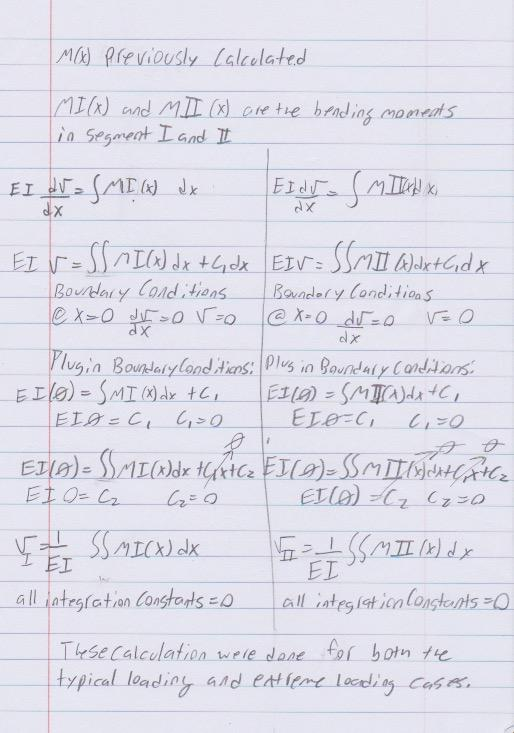 M(x) Previously Calculated
MI(x) and MII(x) are the bending moments
in segment I and II
EI dv/dx = ∫MI(x) dx
EI v = ∫∫MI(x)dx + C₁dx
Boundary Conditions
@ x=0 dv/dx=0 v=0
Plug in Boundary Conditions:
EI(0) = ∫MI(x)dx + C₁
EI0 = C₁ C₁=0
0
EI(0) = ∫∫MI(x)dx + C₁x + C₂
EI 0 = C₂ C₂=0
v_I = 1/EI ∫∫MI(x)dx
all integration Constants = 0
EI dv/dx = ∫MII(x)dx
EIv = ∫∫MII(x)dx + C₁dx
Boundary Conditions
@ x=0 dv/dx=0 v=0
Plug in Boundary Conditions:
EI(0) = ∫MII(x)dx + C₁
EI0 = C₁ C₁=0
0 0
EI(0) = ∫∫MII(x)dx + C₁x + C₂
EI(0) = C₂ C₂=0
v_II = 1/EI ∫∫MII(x)dx
all integration Constants = 0
These calculation were done for both the
typical loading and extreme loading cases.